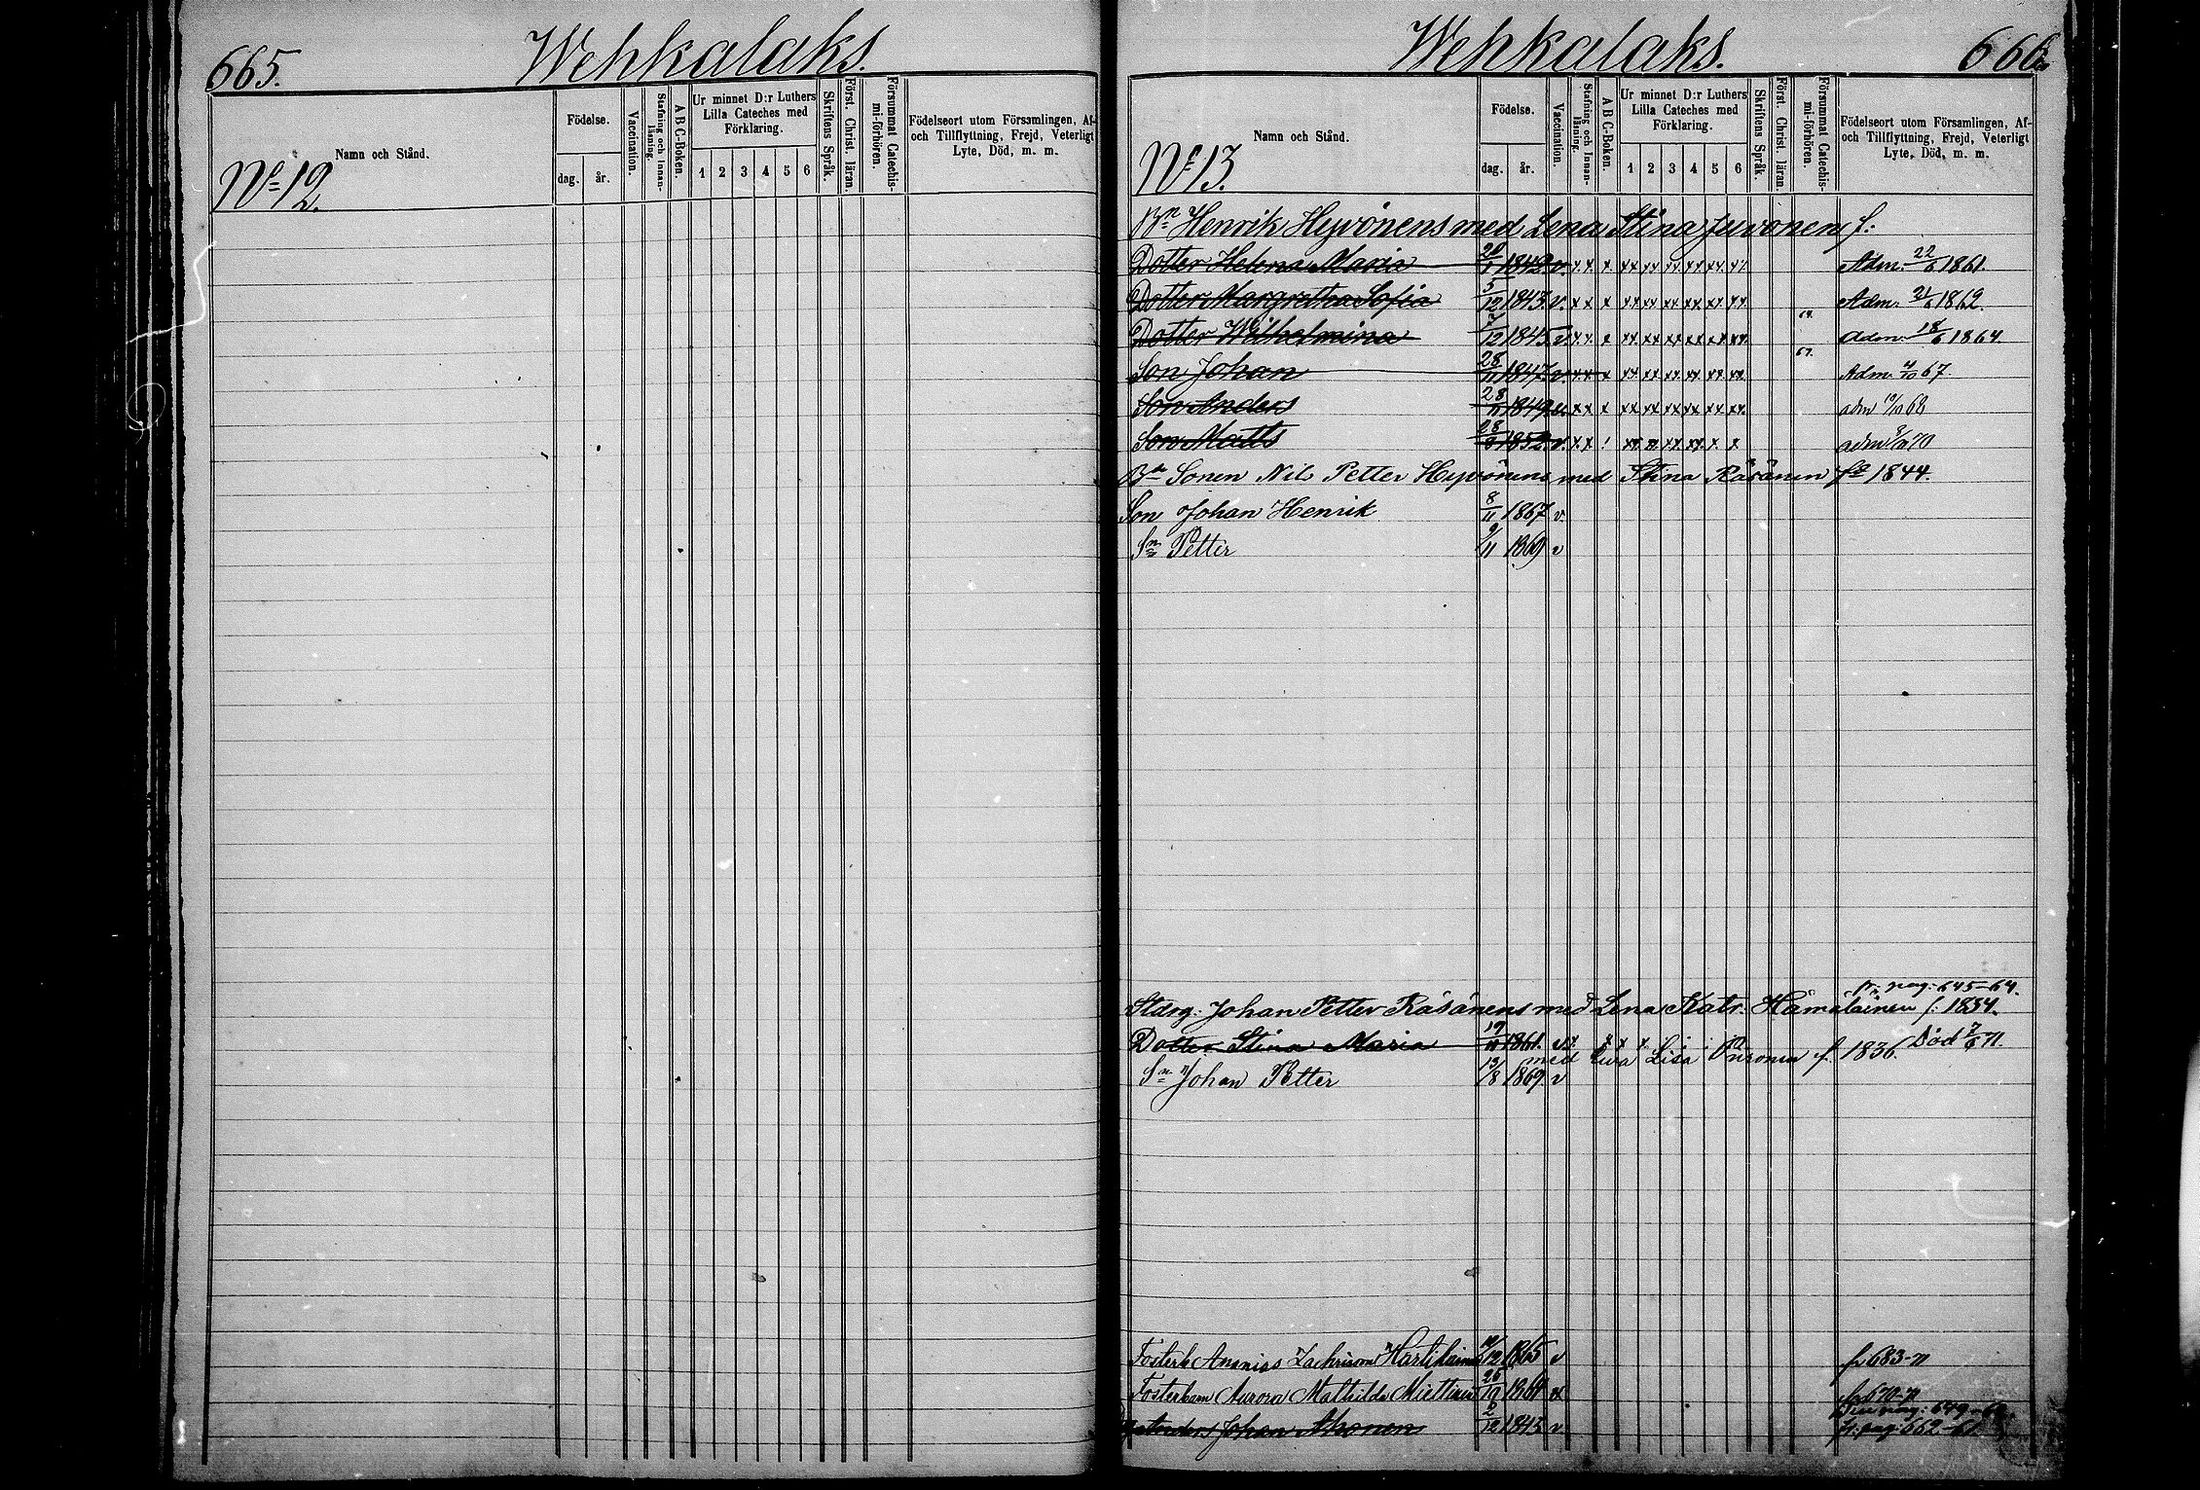 665. Wehkalaks.
Namn och Stånd.
Födelse.
dag. år.
Vaccination.
Stafning och Innanläsning.
A B C-Boken.
Ur minnet D:r Luthers Lilla Cateches med Förklaring.
1 2 3 4 5 6
Skriftens Språk.
Först. Christ. läran.
Försummat Catechismi-förhören.
Födelseort utom Församlingen, Af- och Tillflyttning, Frejd, Veterligt Lyte, Död, m. m.
No 12.
Wehkalaks. 666.
Namn och Stånd.
Födelse.
dag. år.
Vaccination.
Stafning och Innanläsning.
A B C-Boken.
Ur minnet D:r Luthers Lilla Cateches med Förklaring.
1 2 3 4 5 6
Skriftens Språk.
Först. Christ. läran.
Försummat Catechismi-förhören.
Födelseort utom Församlingen, Af- och Tillflyttning, Frejd, Veterligt Lyte, Död, m. m.
No 13.
Bn Henrik Hyvönens med Lena Stina Juvonen f:
Dotter Helena Maria 1842 v. x x x xx xx xx xx xx xx Adm. 22/6 1861.
Dotter Margretha Sofia 5/12 1843 v. x x x xx xx xx xx xx xx Adm. 21/6 1862.
Dotter Wilhelmina 7/12 1845 v. x x x xx xx xx xx xx xx Adm. 18/6 1864.
Son Johan 28/11 1847 v. x x x xx xx xx xx xx xx Adm. 67.
Son Anders 1849 v. x x x xx xx xx xx xx xx adm 68
Son Matts 1852 v. x x xx xx xx xx x x adm 70
Bn Sonen Nils Petter Hyvönens med Stina Räsänen 1844.
Son Johan Henrik 8/11 1867 v
Sn Petter 9/11 1869 v
fr. pag: 645-64.
Stdrg: Johan Petter Räsänens med Lena Katr. Hämäläinen f: 1834.
Dotter Stina Maria 1861. v x x x x Död 71.
med Ewa Lisa f. 1836.
Sn Johan Petter 13/8 1869 v
Fosterb Ananias Zachrisson Hartikainen 1865 v fr 683-71
Fosterbarn Aurora Mathilda Miettinen 1868 v fr 670-71
Johan Ahonen 2/12 1843 v fr. pag: 662-61.